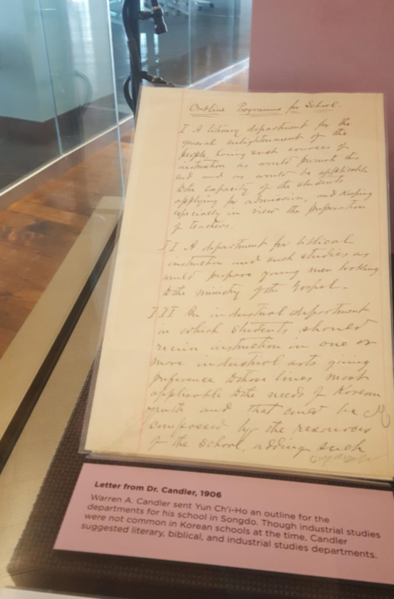 Outline Programme for School.
I A literary department for the
general enlightenment of the
people, having such courses of
instruction as would promote this
end and as would be applicable
to the capacity of the students
applying for admission, and keeping
especially in view the preparation
of teachers.
II A department for biblical
instruction and such studies as
would prepare young men looking
to the ministry of the Gospel.
III An industrial department
in which students should
receive instruction in one or
more industrial arts giving
preference to those lines most
applicable to the needs of Korean
youth and that could be
compassed by the resources
of the School, adding such
Letter from Dr. Candler, 1906
Warren A. Candler sent Yun Ch'i-Ho an outline for the
departments for his school in Songdo. Though industrial studies
were not common in Korean schools at the time, Candler
suggested literary, biblical, and industrial studies departments.